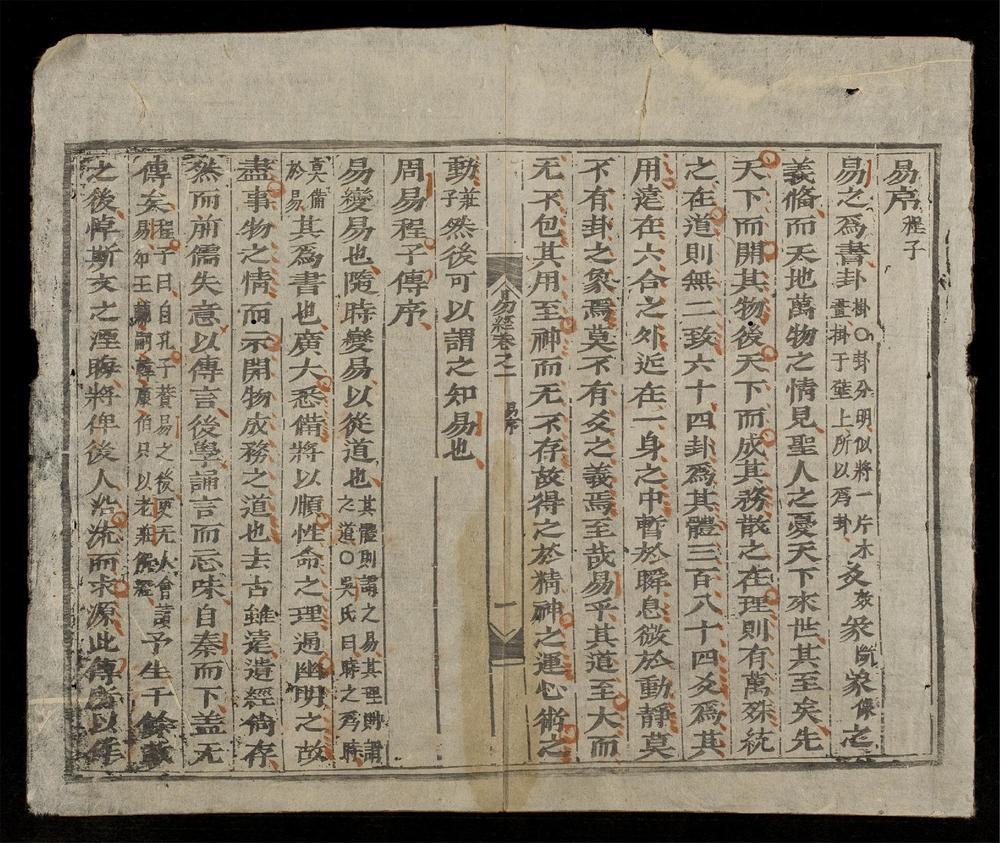 易序程子
易之為書卦掛〇卦分明似將一片木畫掛于壁上所以為卦爻象彖像之
義俻而天地萬物之情見聖人之憂天下來世其至矣先
天下而開其物後天下而成其務散之在理則有萬殊統
之在道則無二致六十四卦爲其體三百八十四爻爲其
用遠在六合之外近在一身之中暫於瞬息微於動靜莫
不有卦之象焉莫不有爻之義焉至哉易乎其道至大而
无不包其用至神而无不存故得之於精神之運心術之
易經卷之一 易序 一
動莊子然後可以謂之知易也
周易程子傳序
易變易也隨時變易以從道也其體則謂之易其理則謂之道〇吳氏曰時之為時
莫備於易其爲書也廣大悉備將以順性命之理通幽明之故
盡事物之情而示開物成務之道也去古雖遠遺經尚存
然而前儒失意以傳言後學誦言而忘味自秦而下盖无
傳矣程子曰自孔子賛易之後更无人會讀易如王韓康伯只以老莊解經予生千餘載
之後悼斯文之湮晦將俾後人沿流而求源此傳所以作